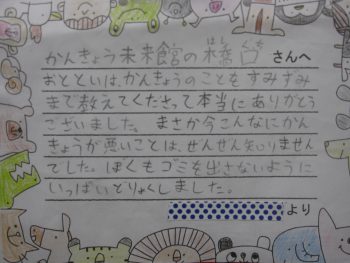 かんきょう未来館の橋台さんへ
おとといは、かんきょうのことをすみずみ
まで教えてくださって本当にありがとう
ございました。まさか今こんなにかん
きょうが悪いことは、ぜんぜん知りません
でした。ぼくもゴミを出さないように
いっぱいどりょくしました。
より